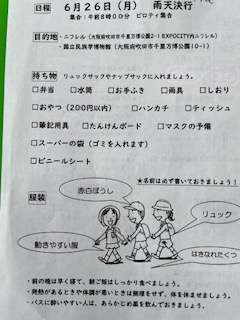 日程 6月26日(月) 雨天決行
集合:午前8時00分 ピロティ集合
目的地・ニフレル(大阪府吹田市千里万博公園2-1 EXPOCITY内ニフレル)
・国立民族学博物館(大阪府吹田市千里万博公園10-1)
持ち物 リュックサックやナップザックに入れましょう。
□弁当 □水筒 □お手ふき □雨具 □しおり
□おやつ(200円以内) □ハンカチ □ティッシュ
□筆記用具 □たんけんボード □マスクの予備
□スーパーの袋(ゴミを入れます)
□ビニールシート
★名前は必ず書いておきましょう!
服装
赤白ぼうし
リュック
動きやすい服
はきなれたくつ
・前の晩は早く寝て、朝ご飯はしっかり食べましょう。
・発熱があるときや体調が悪いときは無理をせず、体を休ませましょう。
・バスに酔いやすい人は、あらかじめ薬を飲んでおきましょう。